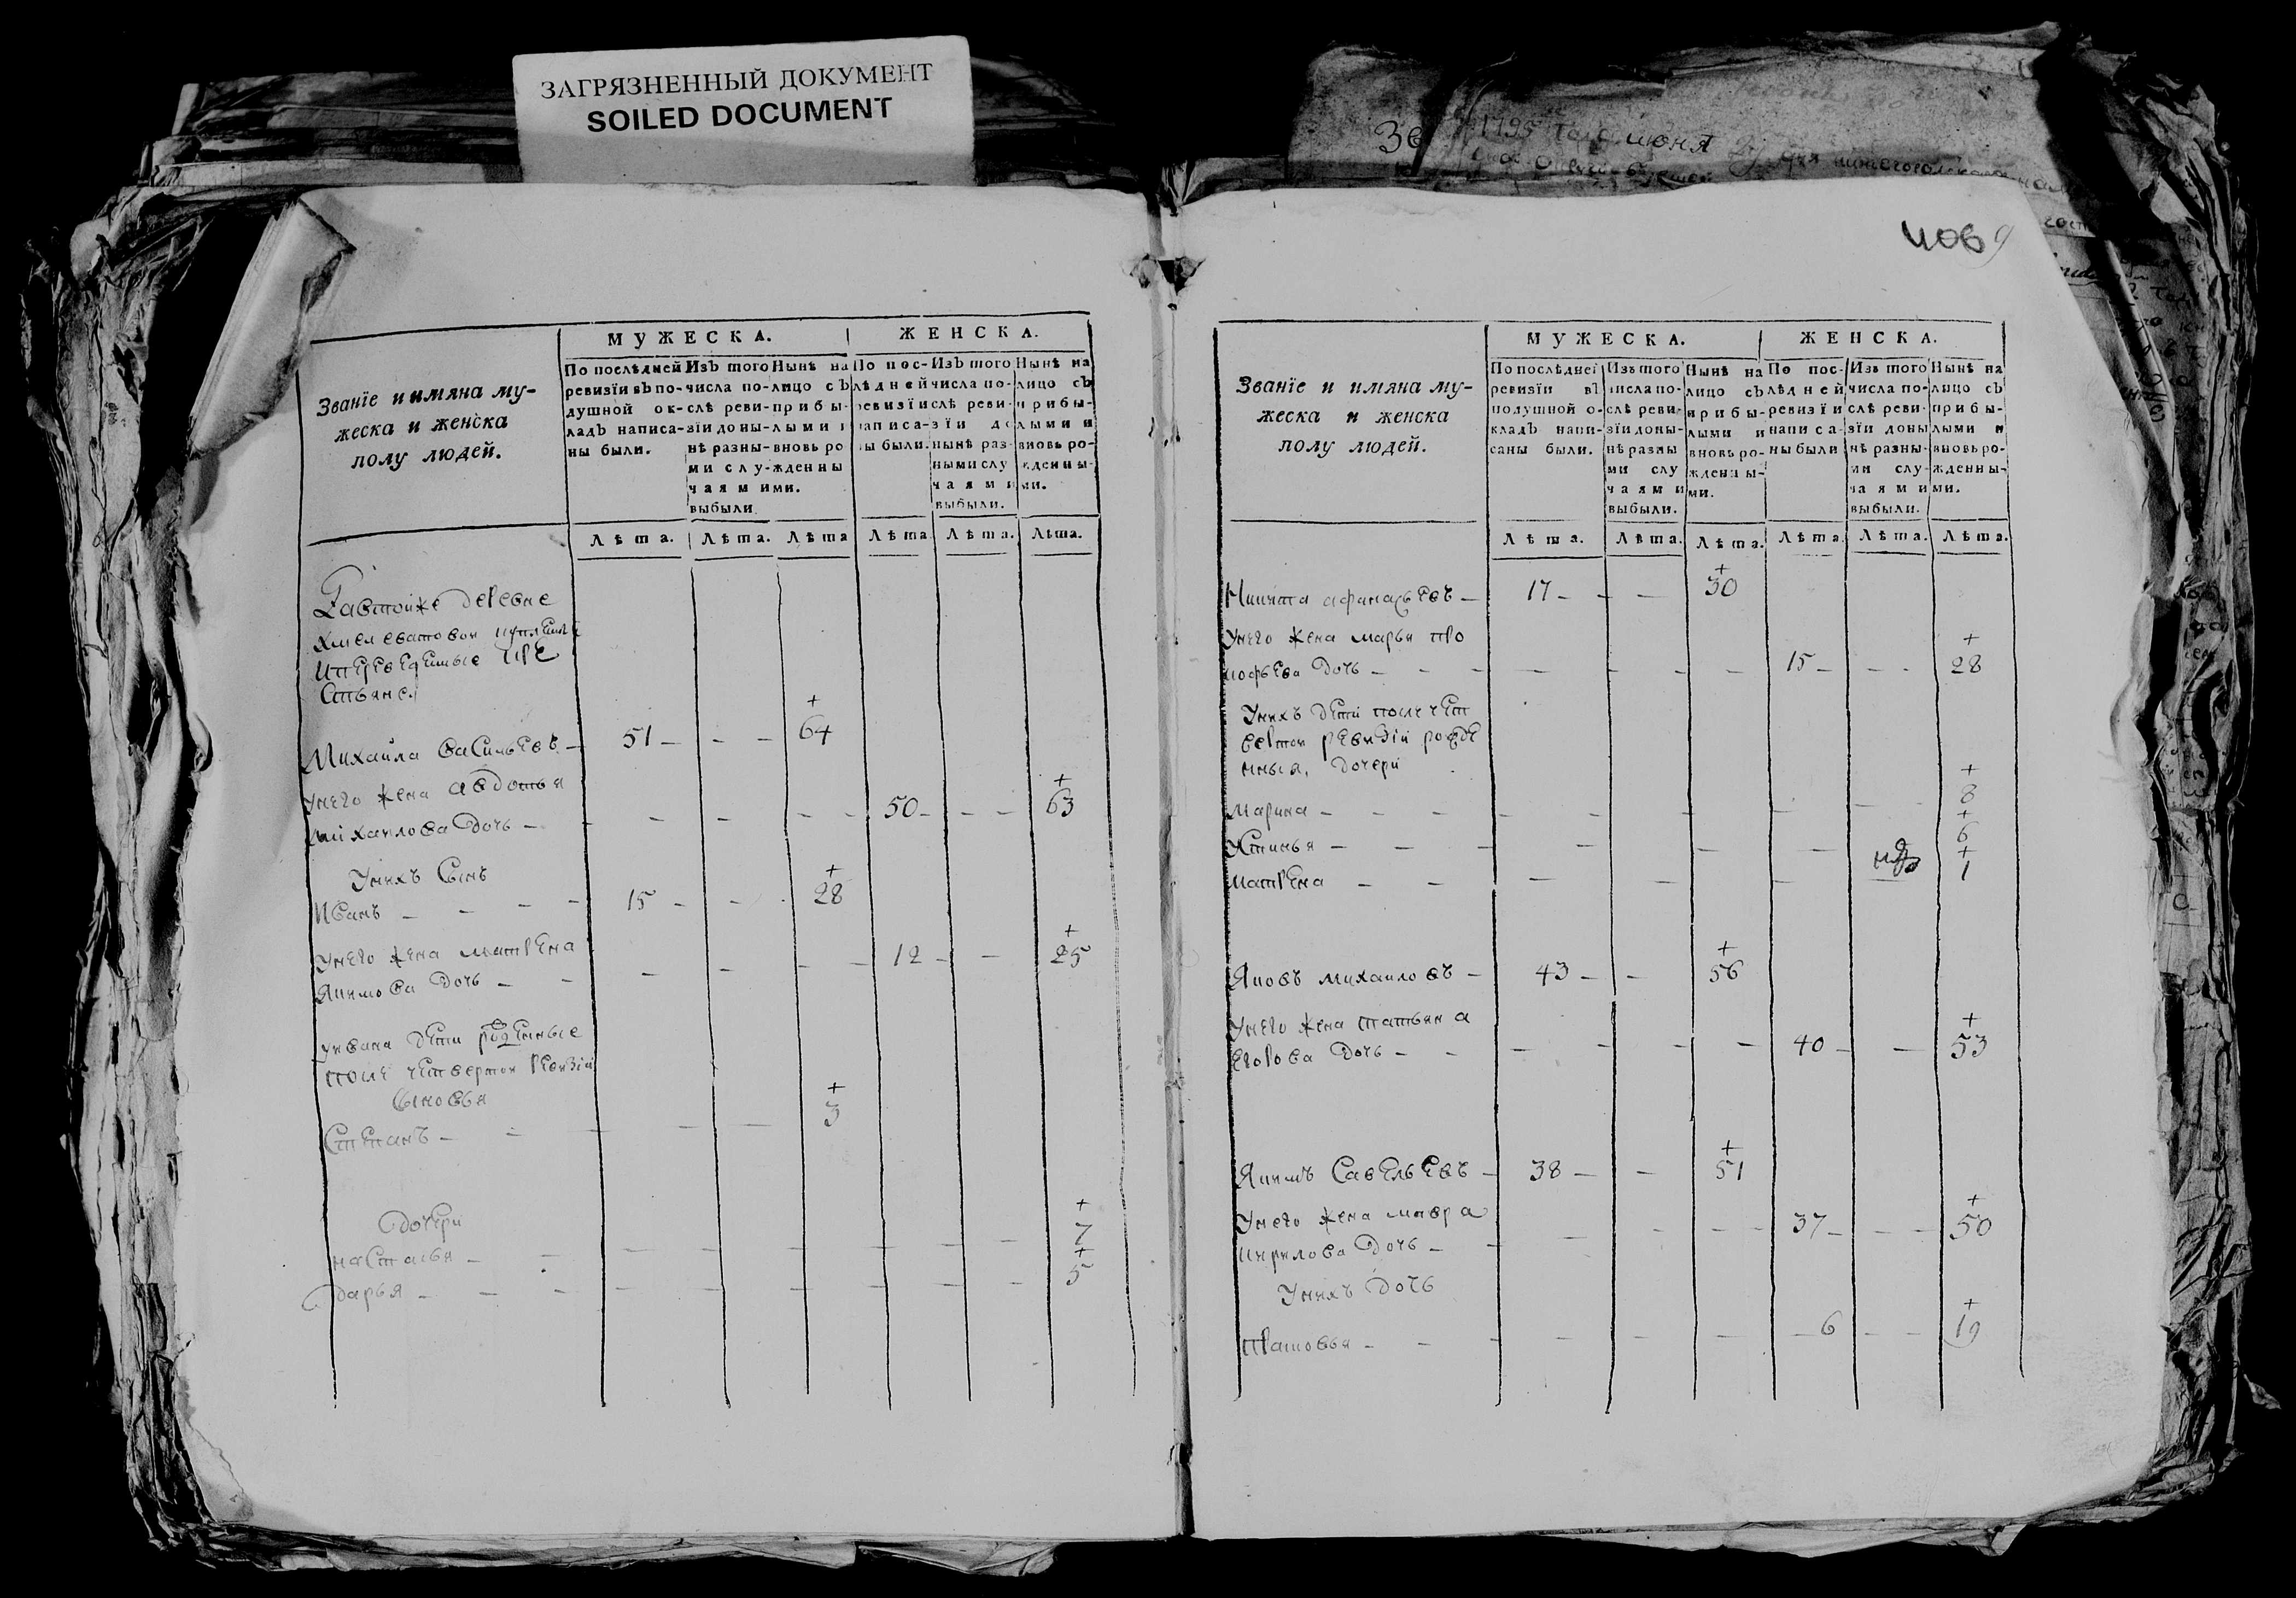 ЗАГРЯЗНЕННЫЙ ДОКУМЕНТ
SOILED DOCUMENT
1795 июня
406 9
Званїе и имяна му-
жеска и женска
полу людей.
МУЖЕСКА. ЖЕНСКА.
По послѣдней ревизїи въ по-душной ок-ладъ написа-ны были.
Изъ того числа по-слѣ реви-зїи до ны-нѣ разны-ми слу-чаями выбыли.
Нынѣ на лицо съ прибы-лыми и вновь ро-жденны ми.
По пос-лѣдней ревизїи написа-ны были.
Изъ того числа по-слѣ реви-зїи до нынѣ раз-ными слу чаями выбыли.
Нынѣ на лицо съ прибы-лыми и вновь ро-жденны-ми.
Лѣта. Лѣта. Лѣта Лѣта Лѣта. Лѣта.
деревне
Стьяне
Михаила Васильевъ — 51 — 64
у него жена авдотья
михаилова дочь — 50 — 63
у нихъ сынъ
Иванъ — 15 — 28
у него жена матрена
якимова дочь — 12 — 25
у ивана дети роденные
после четвертои ревизiи
сыновья
Степанъ — 3
дочери
настасья — 7
дарья — 5
Званїе и имяна му-
жеска и женска
полу людей.
МУЖЕСКА. ЖЕНСКА.
По послѣдней ревизїи въ подушной о-кладъ напи-саны были.
Изъ того числа по-слѣ реви-зїи до ны-нѣ разны ми слу чаями выбыли.
Нынѣ на лицо съ прибы-лыми и вновь ро-жденны-ми.
По пос-лѣдней ревизїи написа-ны были
Изъ того числа по-слѣ реви-зїи до ны нѣ разны-ми слу-чаями выбыли.
Нынѣ на лицо съ прибы-лыми и вновь ро-жденны-ми.
Лѣта. Лѣта. Лѣта. Лѣта. Лѣта. Лѣта.
Никита афанасьевъ — 17 — 30
у него жена марья про
кофьева дочь — 15 — 28
у нихъ дети после чет
вертои ревизiи рожде
нныя, дочери
марина — 8
Устинья — 6
матрена — 1
Яковъ михаиловъ — 43 — 56
у него жена татьяна
егорова дочь — 40 — 53
Якимъ Савельевъ — 38 — 51
у него жена мавра
кирилова дочь — 37 — 50
у нихъ дочь
прасковья — 6 — 19